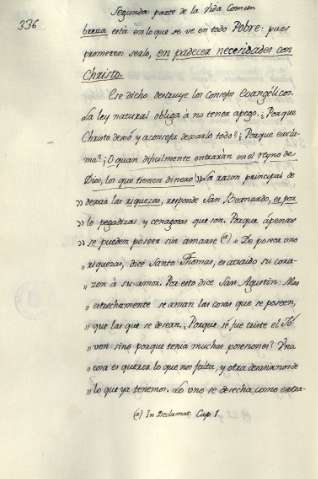 336
Segunda parte de la Vida Comun
breza está en lo que se ve en todo Pobre: pues
prometemos serlo, en padecer necesidades con
Christo.
Ese dicho destruye los consejos Evangelicos.
La ley natural obliga á no tener apego. ¿Porque
Christo dexó y aconseja dexarlo todo? ¿Porque excla-
ma? ¡O quan dificilmente entrarán en el reyno de
Dios, los que tienen dinero! La razon principal de
» dexar las riquezas, responde San Bernardo, es por
» lo pegadizas y que son. Porque apénas
» se pueden poseer sin amarse (a) Se poseen uno
riquezas, dice Santo Thomas, es atraido su cora-
zon á su amor. Por esto dice San Agustin: Mas
» estrechamente se aman las cosas que se poseen,
» que las que se desean. ¿Porque se fue triste el Jo-
» ven sino porque tenia muchas posesiones? Una
» cosa es querer lo que nos falta, y otra
» lo que ya tenemos. Lo uno se desecha como extra-
(a) In Declamat. Cap. 1.